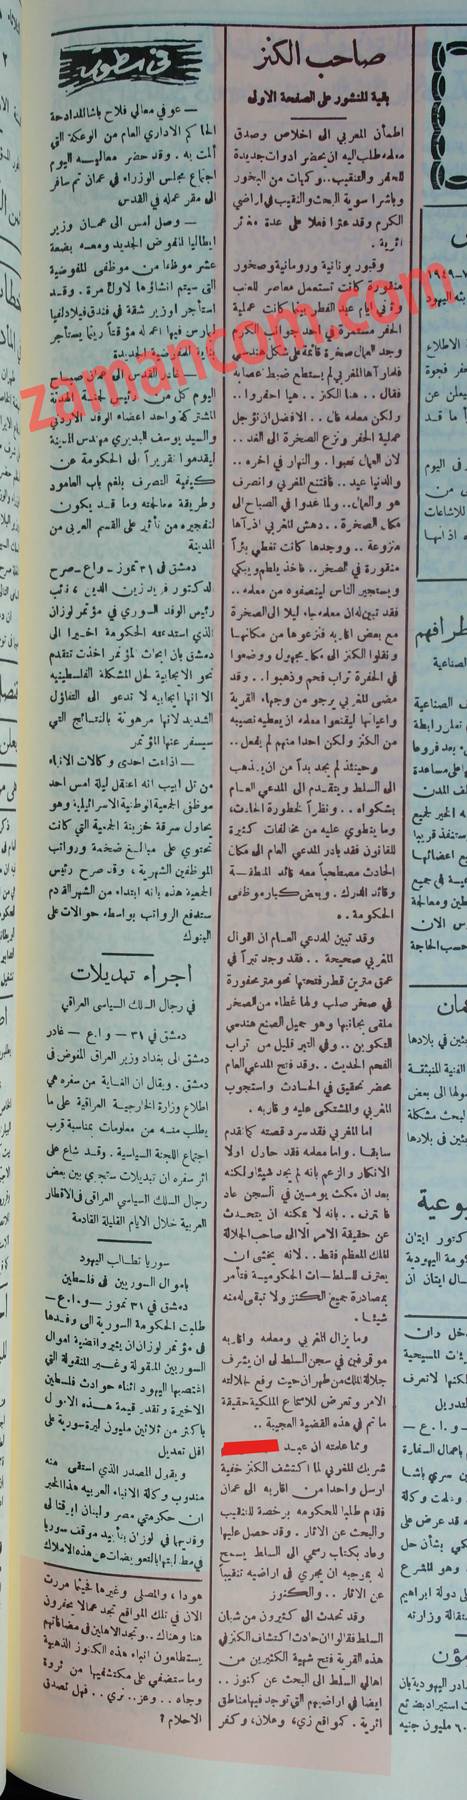 صاحب الكنز
بقية المنشور على الصفحة الاولى
اطمأن المغربي الى اخلاص وصدق
معلمه طلب اليه ان يحضر ادوات جديدة
للحفر والتنقيب.. وكميات من البخور
وباشرا سوية البحث والتنقيب في اراضي
الكرم وقد عثرا فعلا على عدة مغائر
اثرية.
وقبور يونانية ورومانية وصخور
منقورة كانت تستعمل معاصر للعنب
وفي ايام عيد الفطر بينما كانت عملية
الحفر مستمرة في احد جوانب الكرم
وجد العمال صخرة قائمة على شكل هندسي
فلما رآها المغربي لم يستطع ضبط اعصابه
فقال.. هنا الكنز.. هيا احفروا..
ولكن معلمه قال.. الافضل ان نؤجل
عملية الحفر ونزع الصخرة الى الغد..
لان العمال تعبوا.. والنهار في اخره..
والدنيا عيد.. فاقتنع المغربي وانصرف
هو والعمال.. ولما غدوا في الصباح الى
مكان الصخرة.. دهش المغربي اذ رآها
منزوعة.. ووجدها كانت تغطي بئراً
منقورة في الصخر.. فاخذ يلطم ويبكي
ويستجير الناس لينصفوه من معلمه..
فقد تبين له ان معلمه جاء ليلا الى الصخرة
مع بعض اقاربه فنزعوها من مكانها
ونقلوا الكنز الى مكان مجهول ووضعوا
في الحفرة تراب فحم وذهبوا.. وقد
مضى المغربي يرجو من وجهاء القرية
واعيانها ليقنعوا معلمه ان يعطيه نصيبه
من الكنز ولكن احدا منهم لم يفعل..
وحينئذ لم يجد بداً من ان يذهب
الى السلط ويتقدم الى المدعي العام
بشكواه.. ونظراً لخطورة الحادث،
وما ينطوي عليه من مخالفات كثيرة
للقانون فقد بادر المدعي العام الى مكان
الحادث مصطحباً معه قائد المنطقة
وقائد الدرك. وبعض كبار موظفي
الحكومة..
وقد تبين للمدعي العام ان اقوال
المغربي صحيحة.. فقد وجد بئراً في
عمق مترين قطر فتحتها نحو متر محفورة
في صخر صلب ولها غطاء من الصخر
ملقى بجانبها وهو جميل الصنع هندسي
التكوين.. وفي البئر قليل من تراب
الفحم الحديث.. وقد فتح المدعي العام
محضر تحقيق في الحادث واستجوب
المغربي والمشتكى عليه واقاربه.
اما المغربي فقد سرد قصته كما تقدم
سابقا. واما معلمه فقد حاول اولا
الانكار والزعم بانه لم يجد شيئا ولكنه
بعد ان مكث يومين في السجن عاد
فاعترف.. بانه لا يمكنه ان يتحدث
عن حقيقة الامر الا الى صاحب الجلالة
الملك المعظم فقط.. لانه يخشى ان
يعترف للسلطات الحكومية فتأمر
بمصادرة جميع الكنز ولا تبقي له منه
شيئا.
وما يزال المغربي ومعلمه واقاربه
موقوفين في سجن السلط الى ان يشرف
جلالة الملك من طهران حيث يرفع لجلالته
الامر وتعرض للاسماع الملكية حقيقة
ما تم في هذه القضية العجيبة..
ومما علمته ان عيد
شريك المغربي لما اكتشف الكنز خفية
ارسل واحدا من اقاربه الى عمان
فقدم طلبا للحكومة برخصة للتنقيب
والبحث عن الاثار. وقد حصل عليها
وعاد بكتاب رسمي الى السلط يسمح
له بموجبه ان يجري في اراضيه تنقيباً
عن الاثار.. والكنوز
وقد تحدث الى كثيرون من شبان
السلط فقالوا ان حادث اكتشاف الكنز في
هذه القرية فتح شهية الكثيرين من
اهالي السلط الى البحث عن كنوز..
ايضا في اراضيهم التي توجد فيها مناطق
اثرية. كمواقع زي، وعلان، وكفر
هودا، والمصلى وغيرها فحيثما مررت
الان في تلك المواقع تجد عمالا يحفرون
هنا وهناك.. وتجد الاهلين في مضافاتهم
يستطلعون انباء هذه الكنوز الذهبية
وما ستضفي على مكتشفيها من ثروة
وجاه.. وعز.. ترى.. فهل تصدق
الاحلام؟
في سطور
— عوفي معالي فلاح باشا المدادحة
الحاكم الاداري العام من الوعكة التي
ألمت به. وقد حضر معاليه اليوم
اجتماع مجلس الوزراء في عمان ثم سافر
الى مقر عمله في القدس
— وصل امس الى عمان وزير
ايطاليا المفوض الجديد ومعه بضعة
عشر موظفا من موظفي المفوضية
التي سيتم انشاؤها لاول مرة. وقد
استأجر الوزير شقة في فندق فيلادلفيا
ليمارس فيها اعماله مؤقتاً ريثما يستأجر
بناية للمفوضية الجديدة
— غادر القدس الى عمان صباح
اليوم كل من رئيس لجنة الهدنة
المشتركة واحد اعضاء الوفد الاردني
والسيد يوسف البديري مهندس المدينة
ليقدموا تقريراً الى الحكومة عن
كيفية التصرف بلغم باب العامود
وطريقة معالجته وما قد يكون
لتفجيره من تأثير على القسم العربي من
المدينة
دمشق في ٣١ تموز - واع - صرح
الدكتور فريد زين الدين، نائب
رئيس الوفد السوري في مؤتمر لوزان
الذي استدعته الحكومة اخيرا الى
دمشق بان ابحاث المؤتمر اخذت تتقدم
نحو الايجابية لحل المشكلة الفلسطينيه
الا انها ايجابيه لا تدعو الى التفاؤل
الشديد لانها مرهونة بالنتائج التي
سيسفر عنها المؤتمر
— اذاعت احدى وكالات الانباء
من تل ابيب انه اعتقل ليلة امس احد
موظفي الجمعية الوطنية الاسرائيلية وهو
يحاول سرقة خزينة الجمعية التي كانت
تحتوي على مبالغ ضخمة ورواتب
الموظفين الشهرية، وقد صرح رئيس
الجمعية هذه بانه ابتداء من الشهر القادم
ستدفع الرواتب بواسطة حوالات على
البنوك
اجراء تبديلات
في رجال السلك السياسي العراقي
دمشق في ٣١ - و.ا.ع - غادر
دمشق الى بغداد وزير العراق المفوض في
دمشق. ويقال ان الغاية من سفره هي
اطلاع وزارة الخارجية العراقية على ما
يطلب منه من معلومات بمناسبة قرب
اجتماع اللجنة السياسية. وقد شاع على
اثر سفره ان تبديلات ستجري بين بعض
رجال السلك السياسي العراقي في الاقطار
العربية خلال الايام القليلة القادمة
سوريا تطالب اليهود
باموال السوريين في فلسطين
دمشق في ٣١ تموز - و.ا.ع -
طلبت الحكومة السورية الى وفدها
في مؤتمر لوزان ان يثير قضية اموال
السوريين المنقولة وغير المنقولة التي
اغتصبها اليهود اثناء حوادث فلسطين
الاخيرة وتقدر قيمة هذه الاموال
باكثر من ثلاثين مليون ليرة سورية على
اقل تعديل
ويقول المصدر الذي استقى منه
مندوب وكالة الانباء العربيه هذا الخبر
ان حكومتي مصر ولبنان ابرقتا الى
وفديهما في لوزان بتأييد موقف سوريا
في مطالبتها بالتعويضات عن هذه الاملاك
zamancom.com